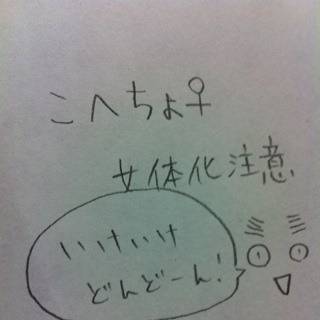 こへちょ♀
女体化注意
いけいけ
どんどーん!